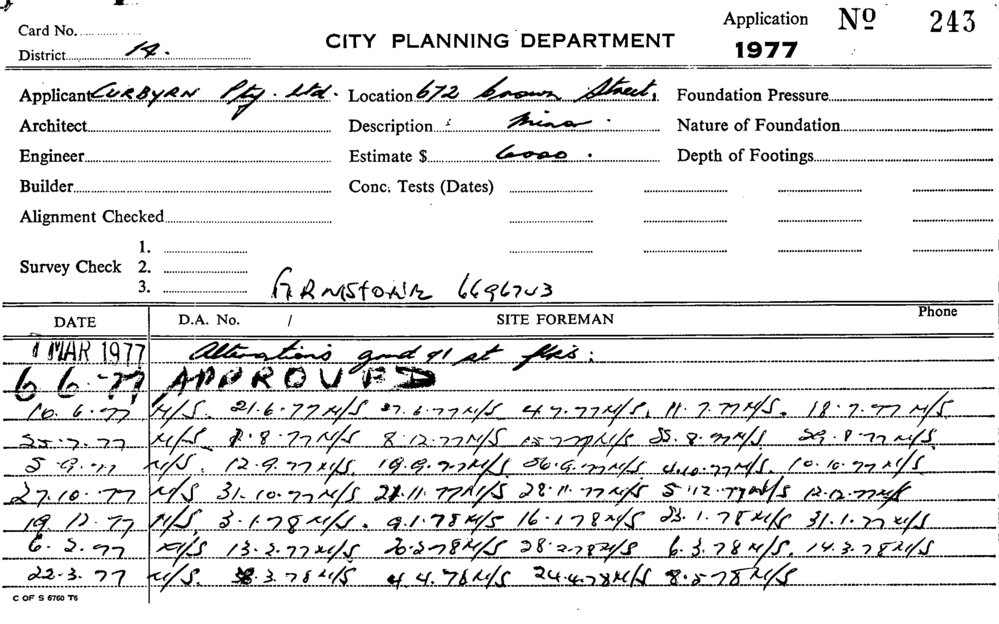 Application Nº 243
Card No.
District 14.
CITY PLANNING DEPARTMENT
1977
Applicant CURBYRN Pty. Ltd. Location 672 Crown Street, Foundation Pressure
Architect Description Minor. Nature of Foundation
Engineer Estimate $ 6000. Depth of Footings
Builder Conc. Tests (Dates)
Alignment Checked
1.
Survey Check 2.
3.
6696703
DATE D.A. No. / SITE FOREMAN Phone
1 MAR 1977 Alterations gnd & 1st flrs:
6 6 -77 APPROVED
10.6.77 N/S. 21.6.77 N/S 27.6.77 N/S 4.7.77 N/S. 11.7.77 N/S. 18.7.77 N/S
25.7.77 N/S 1.8.77 N/S 8.12.77 N/S N/S 29.8.77 N/S.
5.9.77 N/S. 12.9.77 N/S. 19.9.77 N/S. 26.9.77 N/S. 4.10.77 N/S. 10.10.77 N/S.
27.10.77 N/S 31.10.77 N/S 21.11.77 N/S 28.11.77 N/S 5.12.77 N/S 12.12.77 N/S
19.12.77 N/S. 3.1.78 N/S. 9.1.78 N/S 16.1.78 N/S. 23.1.78 N/S 31.1.77 N/S
6.2.77 N/S 13.2.77 N/S 20.2.78 N/S 28.2.78 N/S 6.3.78 N/S. 14.3.78 N/S
22.3.77 N/S. 3.78 N/S 4.4.78 N/S 24.4.78 N/S 8.5.78 N/S
C OF S 6760 T6